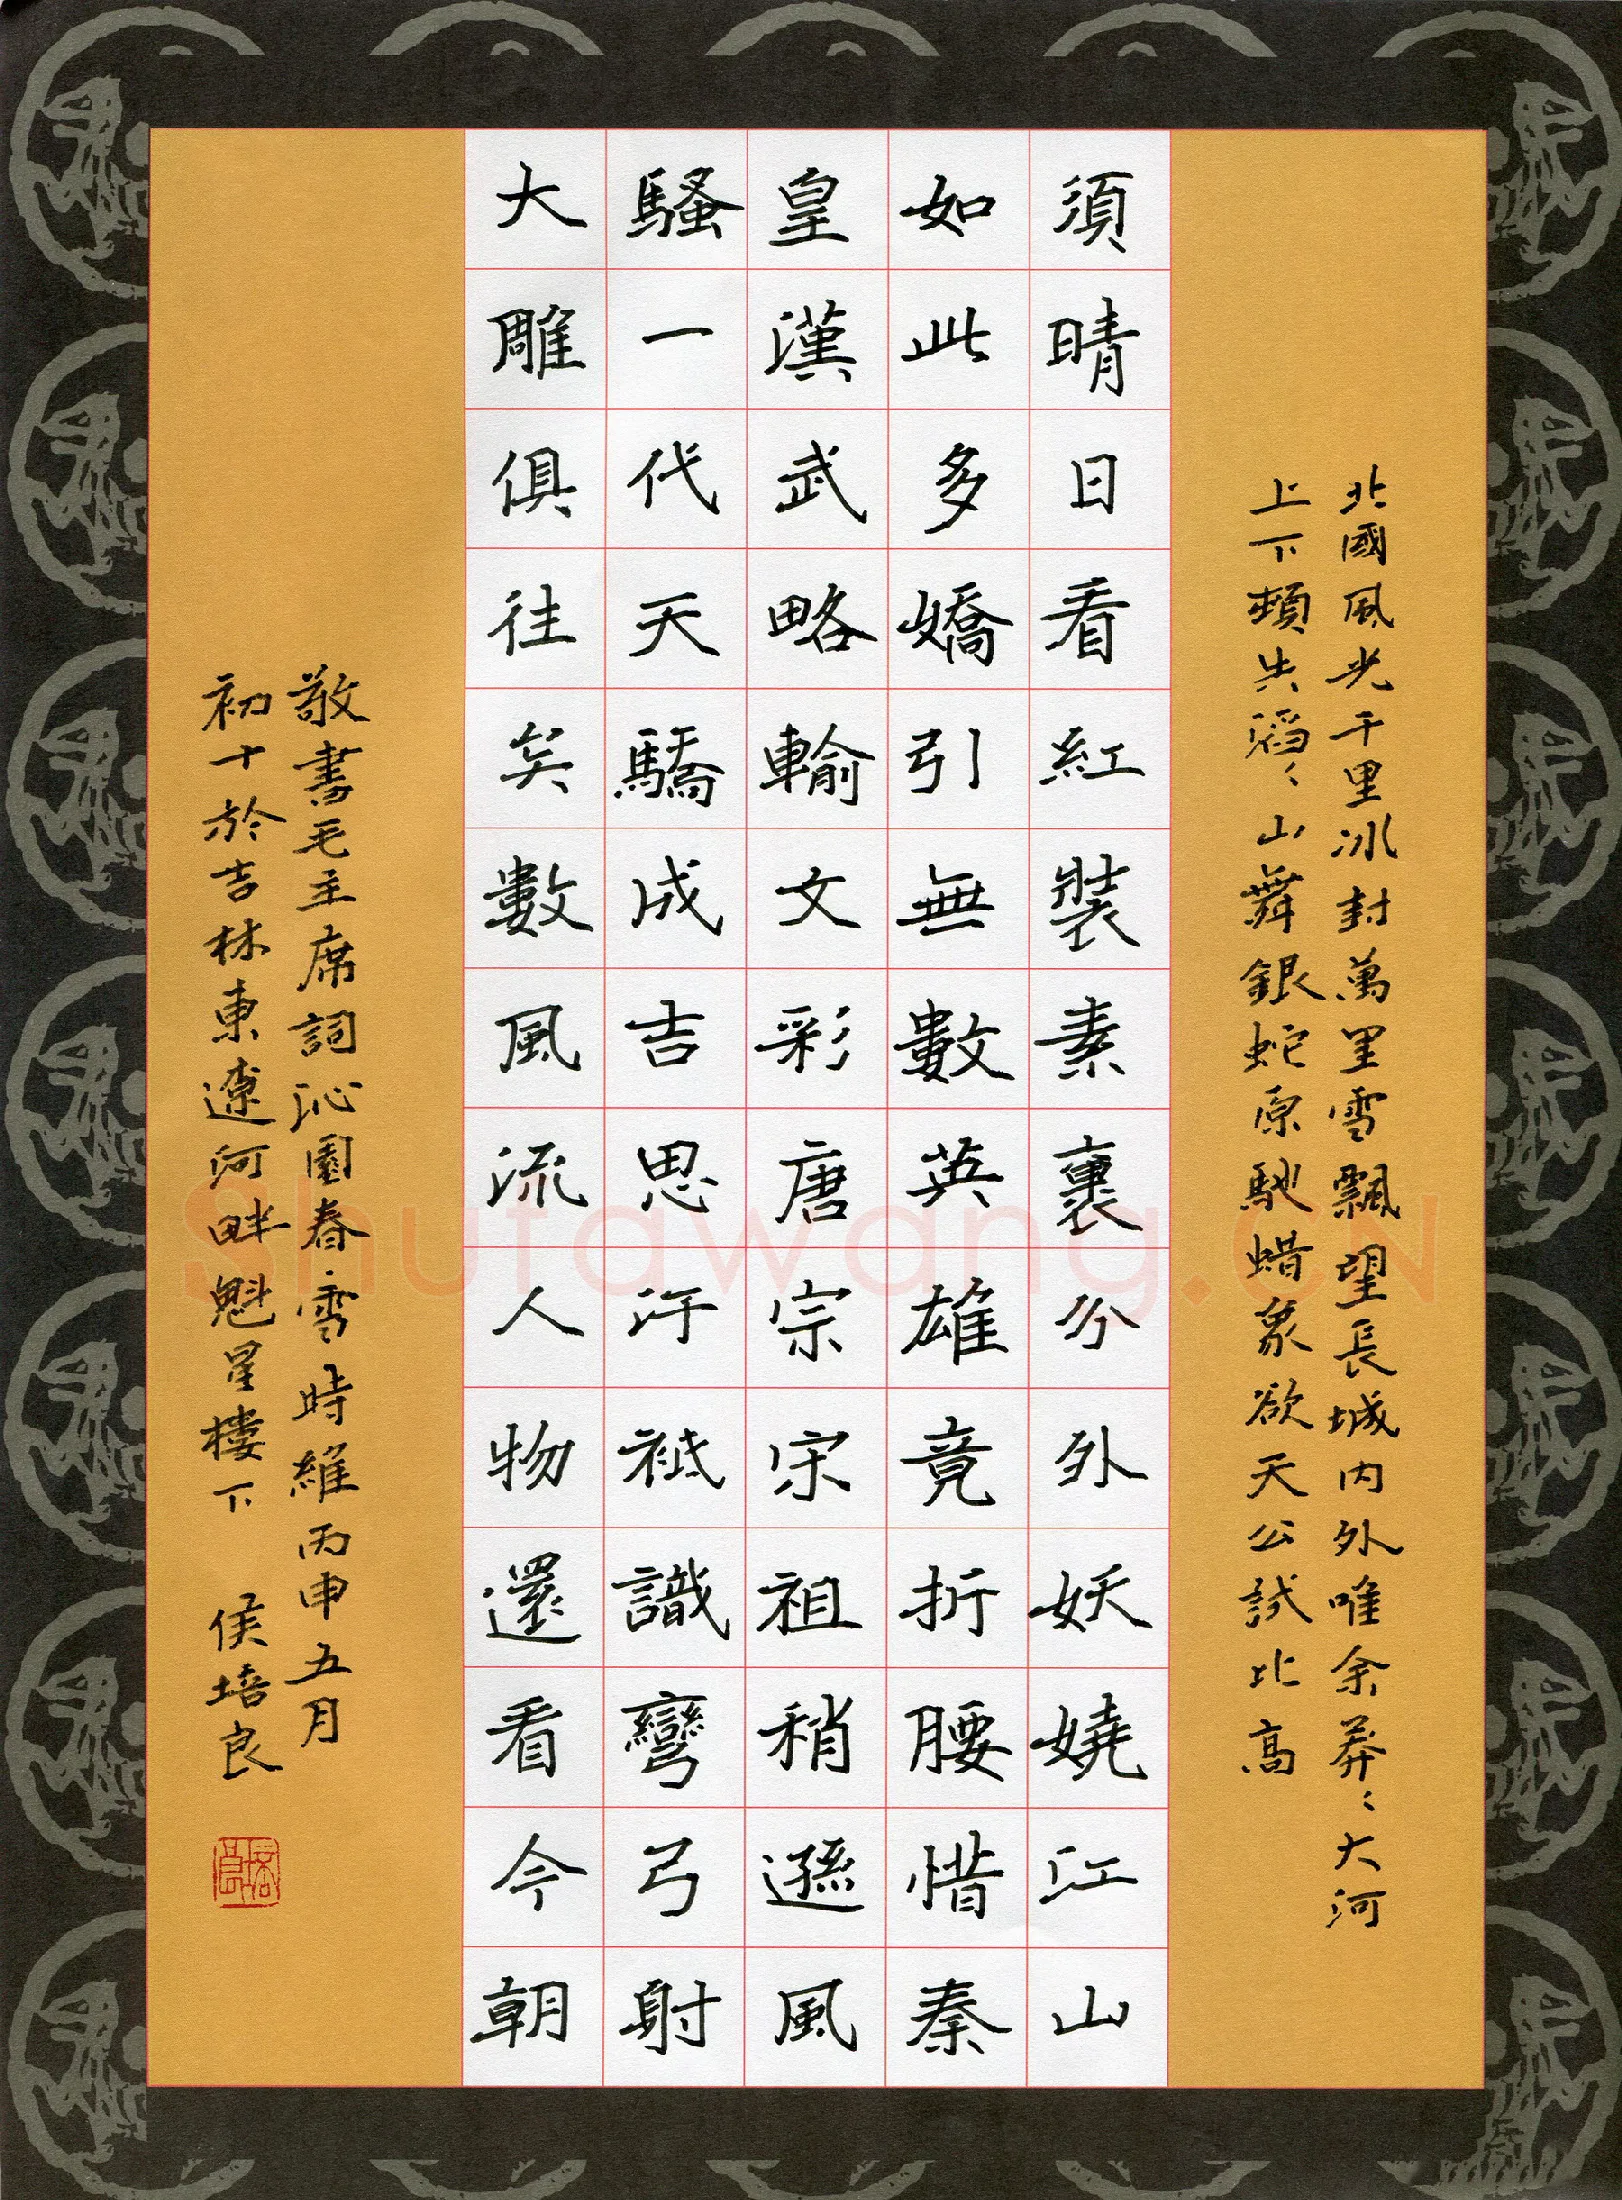 北國風光千里冰封萬里雪飄望長城内外唯余莽〻大河
上下頓失滔〻山舞銀蛇原馳蜡象欲天公試比高
須晴日看紅裝素裹分外妖嬈江山
如此多嬌引無數英雄竟折腰惜秦
皇漢武略輸文彩唐宗宋祖稍遜風
騷一代天驕成吉思汗祇識彎弓射
大雕俱往矣數風流人物還看今朝
敬書毛主席詞沁園春雪時維丙申五月
初十於吉林東遼河畔魁星樓下 侯培良
Shufawang.CN